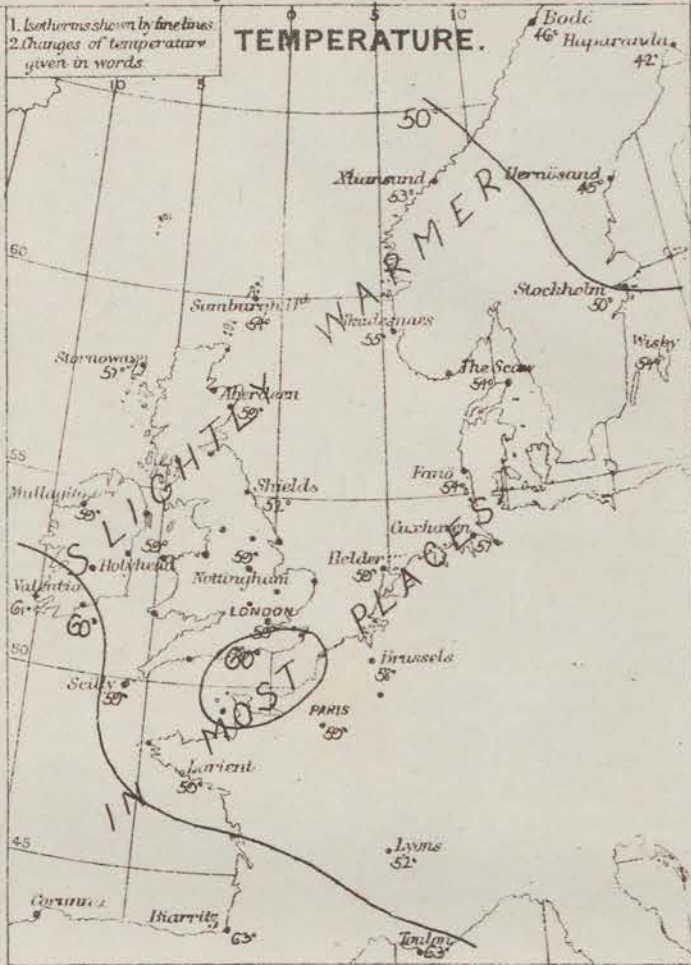 1. Isotherms shown by fine lines
2. Changes of temperature
given in words
TEMPERATURE.
10 5 0 5 10
Bodö
46°
Haparanda
42°
50°
Xtiansund
53°
Hernösand
45°
60
Sumburgh Hd.
54°
Stockholm
50°
Skudesnaes
55°
Wisby
54°
Stornoway
57°
The Scaw
54°
Aberdeen
59°
55
Shields
Fanö
54°
Mullaghmore
59°
Cuxhaven
57°
59°
Holyhead
59°
Nottingham
Helder
59°
Valentia
61°
60°
LONDON
59°
60°
50
Scilly
59°
Brussels
58°
PARIS
59°
Lorient
59°
45
Lyons
52°
Corunna
Biarritz
63°
Toulon
63°
SLIGHTLY WARMER
IN MOST PLACES